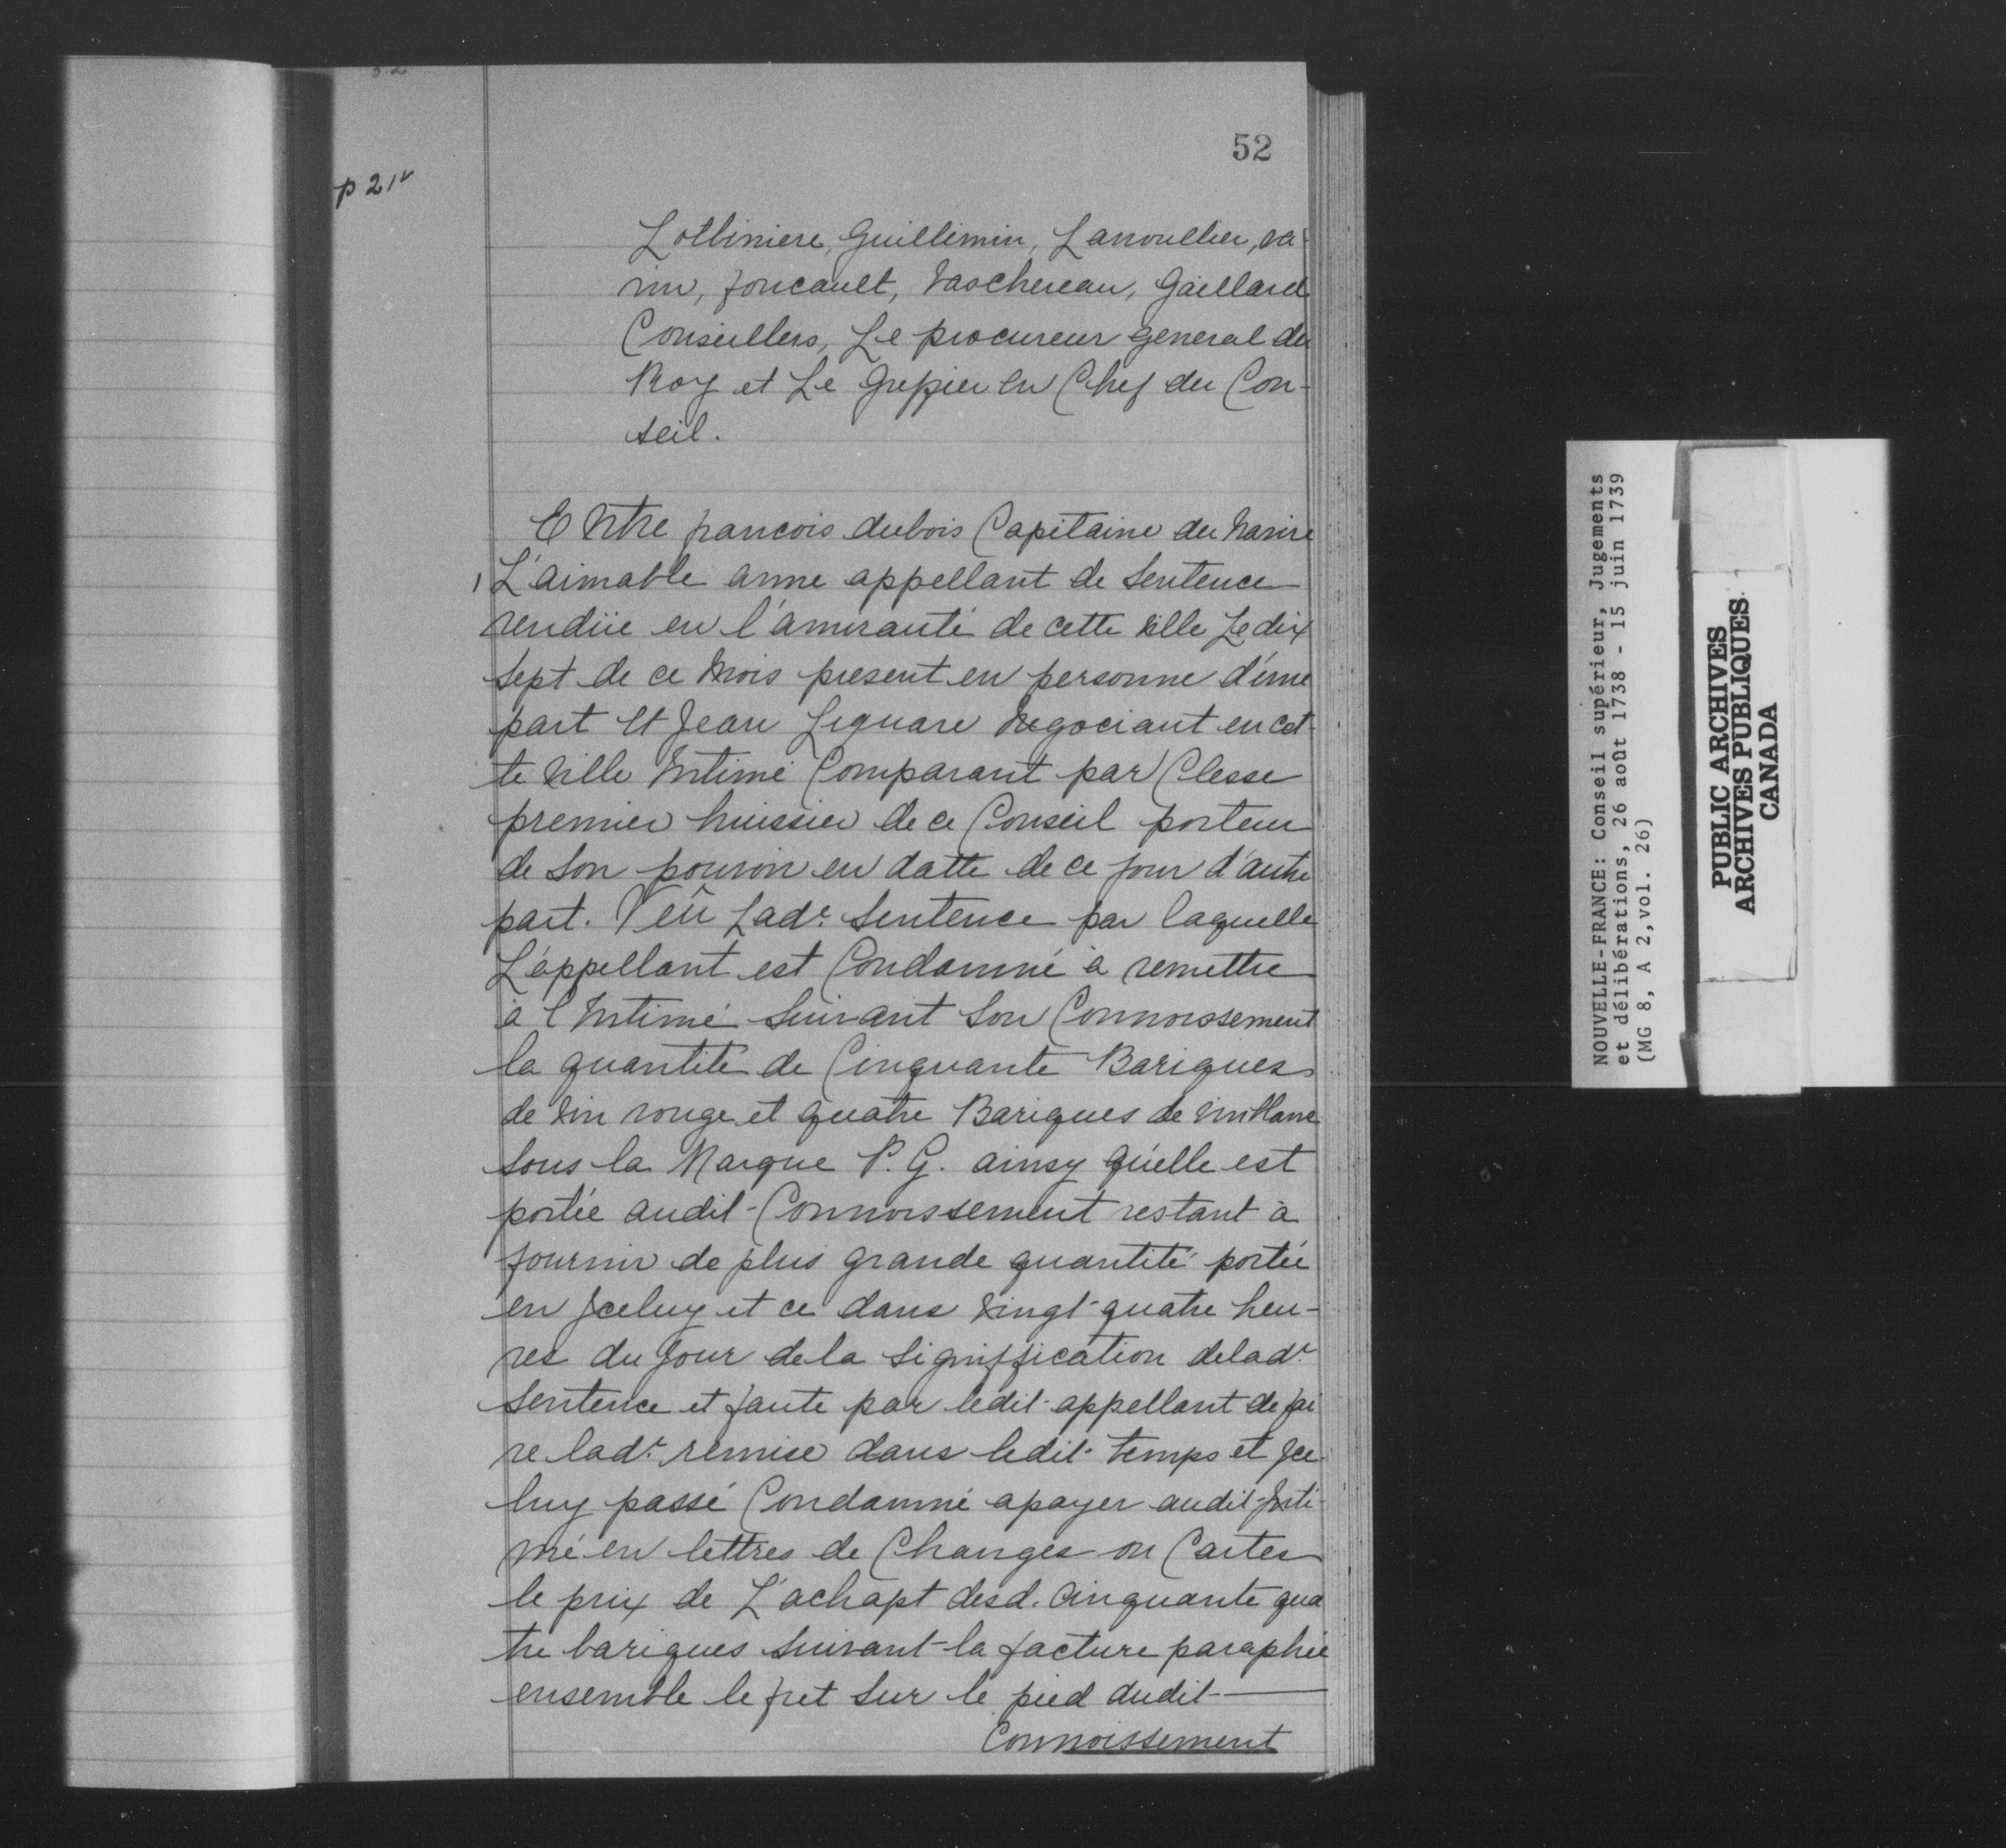 52
p 21v
Lotbiniere, Guillimin, Lanoullier, va-
rin, foucault, taschereau, Gaillard
Conseillers, Le procureur general du
Roy et Le Greffier en Chef du Con-
seil.
Entre francois dubois Capitaine du Navire
L'aimable anne appellant de Sentence
rendüe en l'amirauté de cette Ville Le dix
sept de ce Mois present en personne d'une
part Et Jean Liquare Negociant en cet-
te Ville Intimé Comparant par Clesse
premier huissier de ce Conseil porteur
de Son pouvoir en datte de ce jour d'autre
part. Veû Lade. Sentence par laquelle
L'appellant est Condamné à remettre
à l'Intimé Suivant Son Connoissement
la quantité de Cinquante Bariques
de Vin rouge et quatre Bariques de Vin blanc
Sous la Marque P. G. ainsy qu'elle est
portée audit Connoissement restant à
fournir de plus grande quantité portée
en Jceluy et ce dans Vingt-quatre heu-
res du Jour de la Signiffication delade.
Sentence et faute par ledit appellant de fai
re lade. remise dans ledit temps et Jce-
luy passé Condamné apayer audit Inti-
mé en lettres de Changes ou Cartes
le prix de L'achapt desd. Cinquante qua
tre bariques Suivant la facture paraphée
ensemble le fret Sur le pied dudit
Connoissement
NOUVELLE-FRANCE: Conseil supérieur, Jugements
et délibérations, 26 août 1738 - 15 juin 1739
(MG 8, A 2, vol. 26)
PUBLIC ARCHIVES
ARCHIVES PUBLIQUES
CANADA